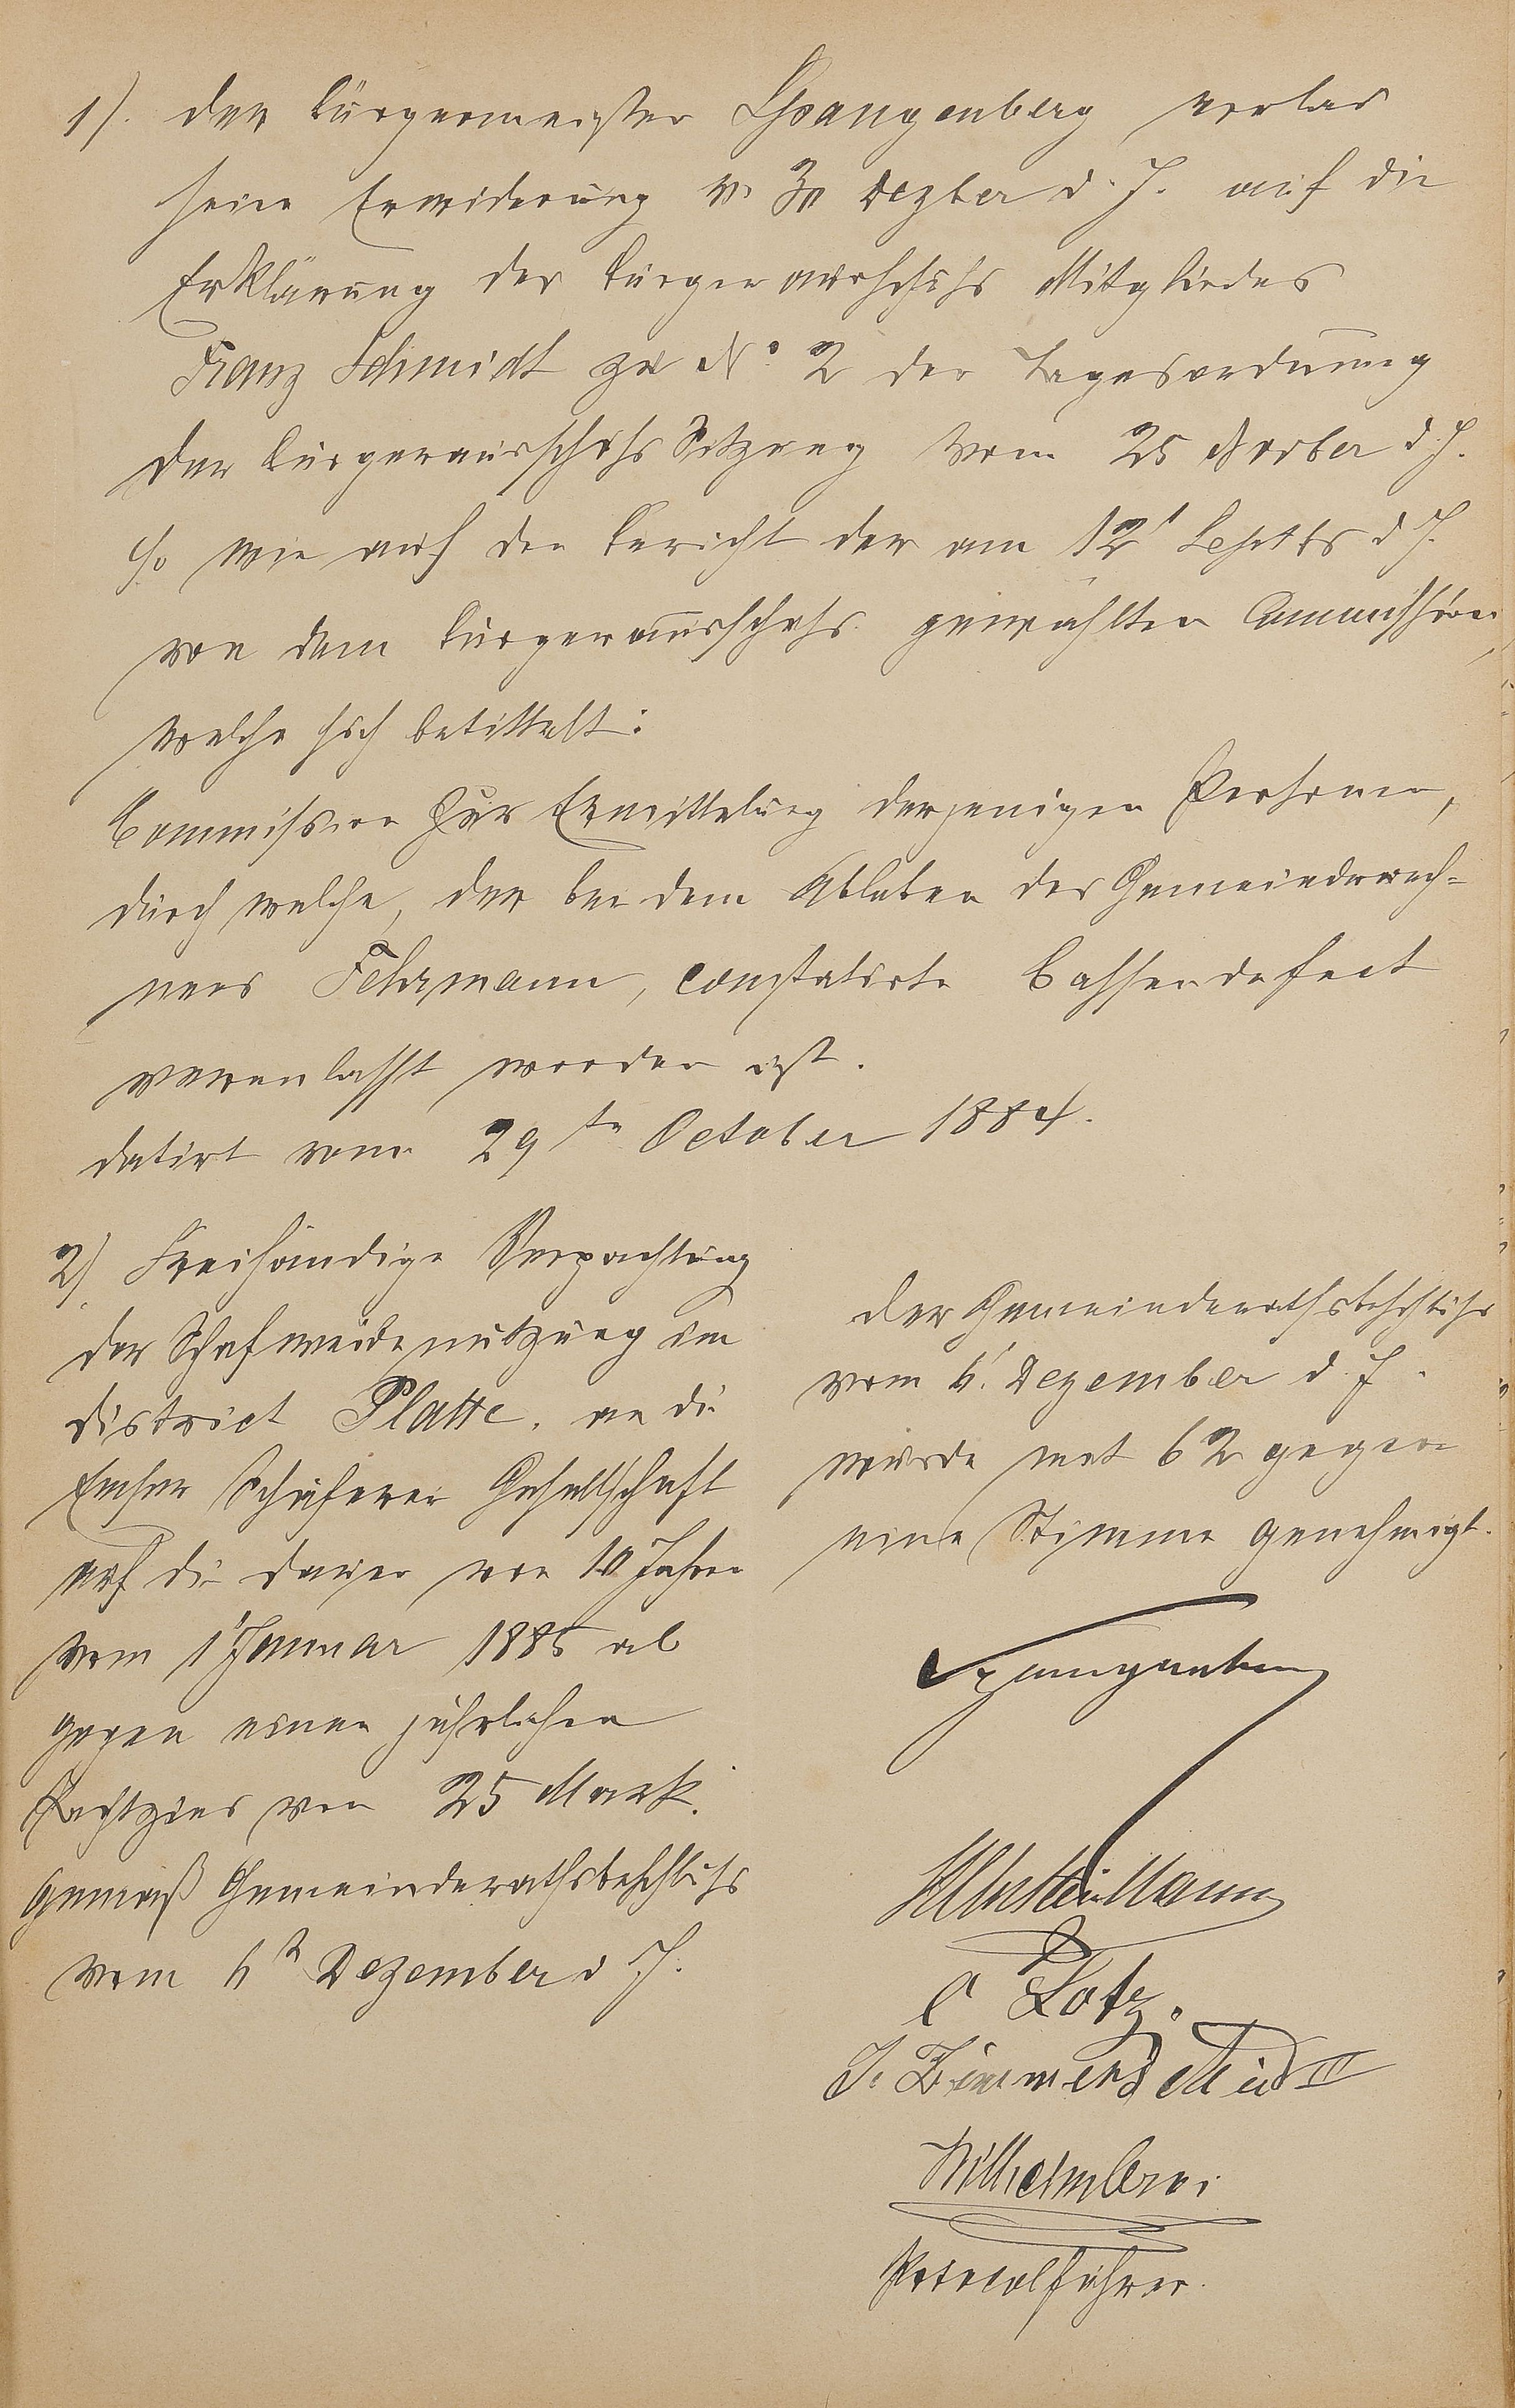 1). Der Bürgermeister Spangenberg verlas
seine Erwiderung v. 30 Dezber d. J. auf die
Erklärung des Bürgerausschuß Mitgliedes
Franz Schmidt zu No. 2 der Tagesordnung
der Bürgerausschuß Sitzung vom 25 Novber d. J.
so wie auf den Bericht der am 12t Septbr d J.
von dem Bürgerausschuß gewählten Commission,
welche sich betittelt:
Commission zur Ermittelung derjenigen Personen,
durch welche, der bei dem Ableben des Gemeinderech-
ners Fehrmann, constatirte Cassendefect
veranlasst worden ist.
datirt vom 29ten October 1884.
2) Freihändige Verpachtung
der Schafweidenutzung im
District Platte. an die
Emser Schäferei Gesellschaft
auf die Dauer von 10 Jahren
vom 1t Januar 1885 ab
gegen einen jährlichen
Pachtzins von 25 Mark.
gemäß Gemeinderathsbeschluß
vom 6t Dezember d J.
Der Gemeinderathsbeschluß
vom 6t. Dezember d. J.
wurde mit 62 gegen
eine Stimme genehmigt.
Spangenberg
C Lotz.
J. Zimmerschied III
Wilhelm
Protocolführer.